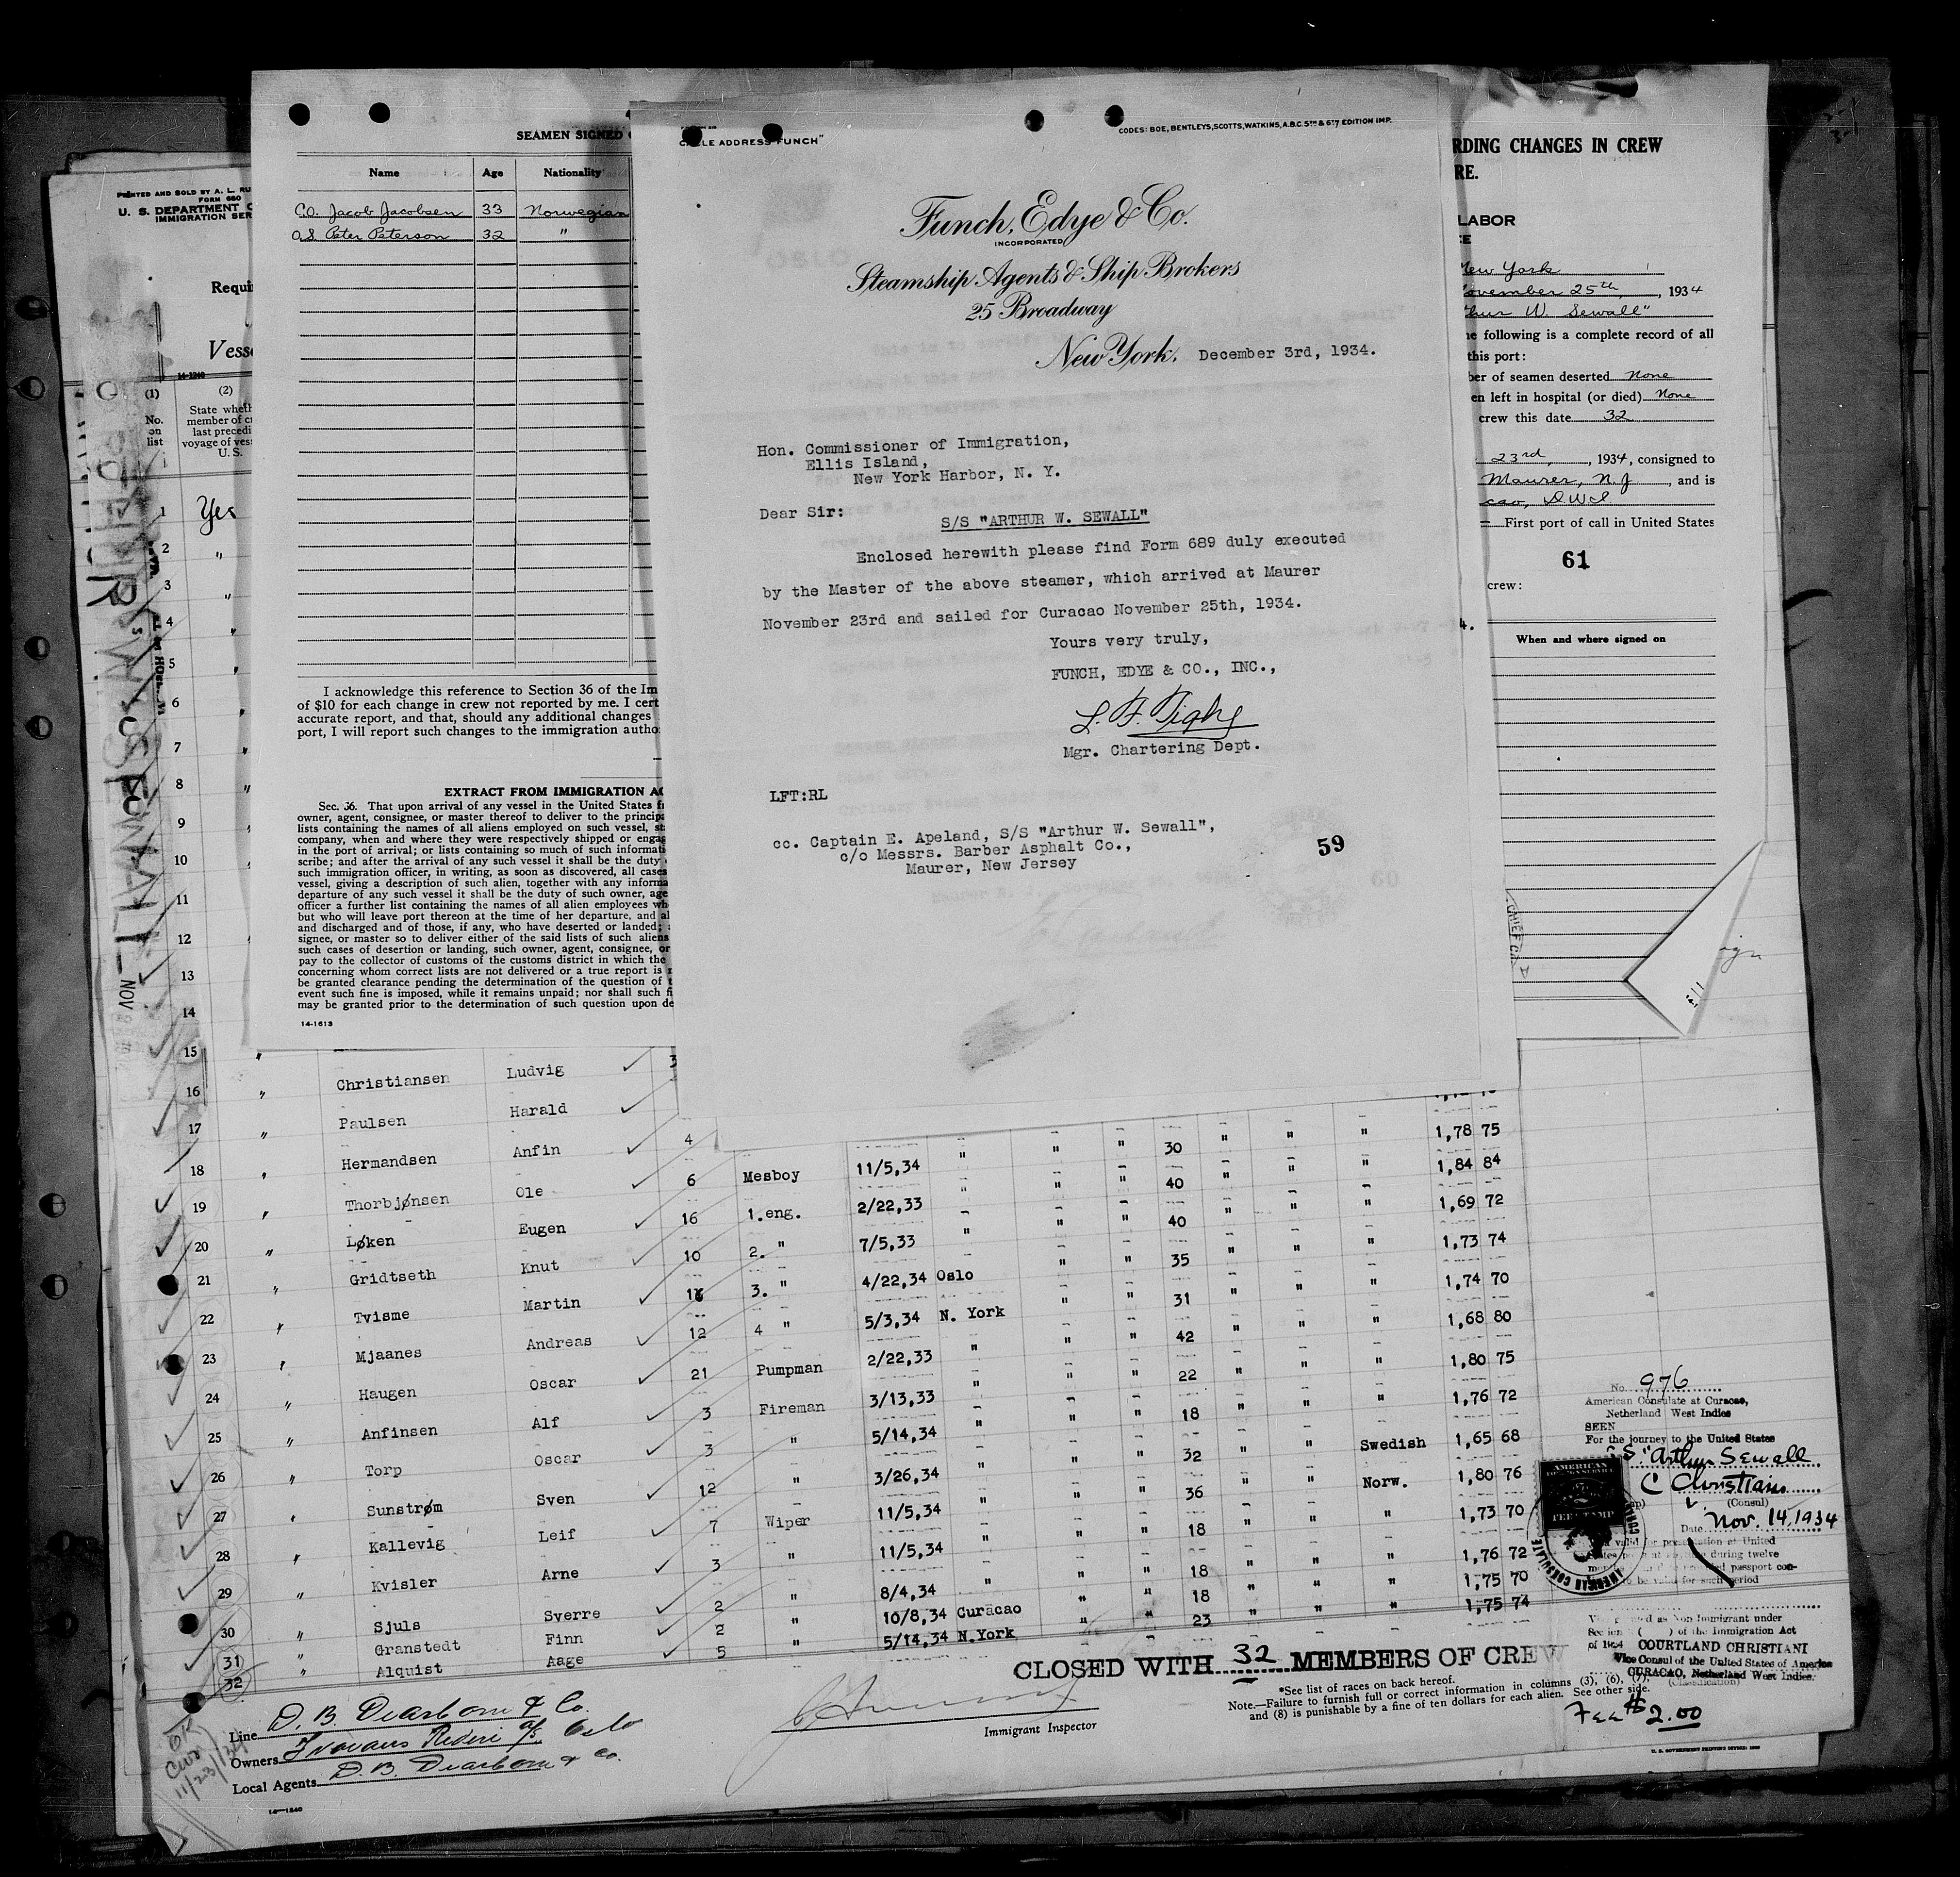 CODES: BOE, BENTLEYS, SCOTTS, WATKINS, A.B.C. 5TH & 6TH EDITION IMP.
ADDRESS "FUNCH"
Funch, Edye & Co.
INCORPORATED
Steamship Agents & Ship Brokers
25 Broadway
New York, December 3rd, 1934.
Hon. Commissioner of Immigration,
Ellis Island,
New York Harbor, N. Y.
Dear Sir:
S/S "ARTHUR W. SEWALL"
Enclosed herewith please find Form 689 duly executed
by the Master of the above steamer, which arrived at Maurer
November 23rd and sailed for Curacao November 25th, 1934.
Yours very truly,
FUNCH, EDYE & CO., INC.,
Mgr. Chartering Dept.
LFT:RL
cc. Captain E. Apeland, S/S "Arthur W. Sewall",
c/o Messrs. Barber Asphalt Co.,
Maurer, New Jersey
59
SEAMEN SIGNED
Name Age Nationality
C.O. Jacob Jacobsen 33 Norwegian
O.S. Peter Peterson 32 "
I acknowledge this reference to Section 36 of the Im
of $10 for each change in crew not reported by me. I cert
accurate report, and that, should any additional changes
port, I will report such changes to the immigration autho
EXTRACT FROM IMMIGRATION AC
Sec. 36. That upon arrival of any vessel in the United States f
owner, agent, consignee, or master thereof to deliver to the principa
lists containing the names of all aliens employed on such vessel, st
company, when and where they were respectively shipped or engag
in the port of arrival; or lists containing so much of such informati
scribe; and after the arrival of any such vessel it shall be the duty
such immigration officer, in writing, as soon as discovered, all cases
vessel, giving a description of such alien, together with any informa
departure of any such vessel it shall be the duty of such owner, age
officer a further list containing the names of all alien employees wh
but who will leave port thereon at the time of her departure, and al
and discharged and of those, if any, who have deserted or landed;
signee, or master so to deliver either of the said lists of such aliens
such cases of desertion or landing, such owner, agent, consignee, or
pay to the collector of customs of the customs district in which the
concerning whom correct lists are not delivered or a true report is
be granted clearance pending the determination of the question of t
event such fine is imposed, while it remains unpaid; nor shall such fi
may be granted prior to the determination of such question upon de
14-1613
RDING CHANGES IN CREW
RE.
LABOR
New York
November 25th, 1934
thur W. Sewall"
he following is a complete record of all
this port:
ber of seamen deserted None
en left in hospital (or died) None
crew this date 32
23rd, 1934, consigned to
Maurer, N.J, and is
cao, DWI
First port of call in United States
61
crew:
When and where signed on
PRINTED AND SOLD BY A. L. RU
FORM 680
U. S. DEPARTMENT O
IMMIGRATION SER
Requi
Vess
14-1240
(1) (2)
No. on list
State wheth
member of c
last precedi
voyage of ves
U. S.
1 Yes
2 "
3 "
4 "
5 "
6 "
7 "
8 "
9 "
10 "
11 "
12 "
13
14
15 "
16 " Christiansen Ludvig
17 " Paulsen Harald
18 " Hermandsen Anfin 4 30 1,78 75
19 " Thorbjønsen Ole 6 Mesboy 11/5,34 " " " 40 " " " 1,84 84
20 " Løken Eugen 16 1.eng. 2/22,33 " " " 40 " " " 1,69 72
21 " Gridtseth Knut 10 2. " 7/5,33 " " " 35 " " " 1,73 74
22 " Tvisme Martin 3. " 4/22,34 Oslo " " 31 " " " 1,74 70
23 " Mjaanes Andreas 12 4 " 5/3,34 N. York " " 42 " " " 1,68 80
24 " Haugen Oscar 21 Pumpman 2/22,33 " " " 22 " " " 1,80 75
25 " Anfinsen Alf 3 Fireman 3/13,33 " " " 18 " " " 1,76 72
26 " Torp Oscar 3 " 5/14,34 " " " 32 " " Swedish 1,65 68
27 " Sunstrøm Sven 12 " 3/26,34 " " " 36 " " Norw. 1,80 76
28 " Kallevig Leif 7 Wiper 11/5,34 " " " 18 " " " 1,73 70
29 " Kvisler Arne 3 " 11/5,34 " " " 18 " " " 1,76 72
30 " Sjuls Sverre 2 " 8/4,34 " " " 18 " " " 1,75 70
31 " Granstedt Finn 2 " 10/8,34 Curacao " " 23 " " " 1,75 74
32 " Alquist Aage 5 " 5/14,34 N.York
CLOSED WITH 32 MEMBERS OF CREW
*See list of races on back hereof.
Note.—Failure to furnish full or correct information in columns (3), (6), (7),
and (8) is punishable by a fine of ten dollars for each alien. See other side.
Immigrant Inspector
Line D. B. Dearborn & Co.
Owners Rederi A/S, Oslo
Local Agents D. B. Dearborn & Co.
14—1240
OK
11/23/34
No. 976
American Consulate at Curacao,
Netherland West Indies
SEEN
For the journey to the United States
S.S "Arthur Sewall
C Christiani
(Consul)
Date Nov. 14, 1934
AMERICAN
FEE STAMP
AMERICAN CONSULATE
during twelve
passport con-
period
Immigrant under
of the Immigration Act
COURTLAND CHRISTIANI
Vice Consul of the United States of America
CURACAO, Netherland West Indies.
(Classification)
Fee $2.00
U. S. GOVERNMENT PRINTING OFFICE